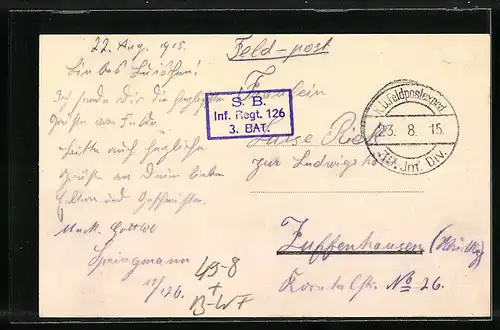 22. Aug. 1915.
Liebes Luischen!
Ich sende Dir die herzlichsten
Grüße aus
auch herzliche
Grüße an Deine lieben
Eltern und Geschwister.
Springmann
11/126.
Feld-post
Fräulein
Luise
zur Ludwigshöhe
Zuffenhausen (Württbg)
Korntalstr. No 26.
S. B.
Inf. Regt. 126
3. BAT.
K.D. Feldpostexped.
23. 8. 15.
39. Inf. Div.
49-8
+
B-WF